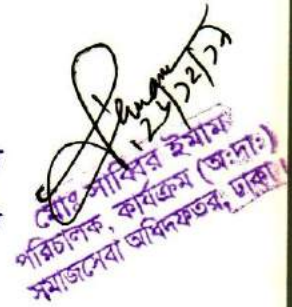 ২৮/১২/১৭
মোঃ সাব্বির ইমাম
পরিচালক, কার্যক্রম (অঃদাঃ)
সমাজসেবা অধিদফতর, ঢাকা।